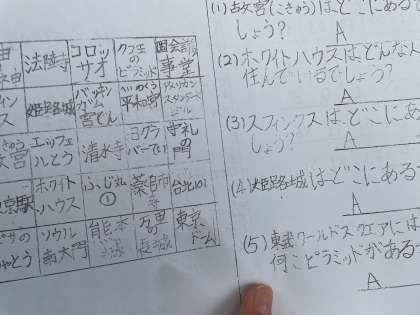 法隆寺
コロッサオ
クフ王のピラミッド
国会議事堂
姫路城
バッキンガム宮でん
平和の宮
エンパイアステートビル
宮
エッフェルとう
清水寺
ヨグラバーてい
守礼門
京駅
ホワイトハウス
ふじ丸①
薬自市寺
台北101
ピサの
しゃとう
ソウル南大門
熊本城
万里長城
東京ドーム
(1) 古文宮(こきゅう)はどこにある
しょう？
A
(2) ホワイトハウスは、どんな人
住んでいるでしょう？
A
(3) スフィンクスは、どこにあ
しょう？
A
(4) 姫路城はどこにある
A
(5) 東武ワールドスクエアには
何こピラミッドがある
A